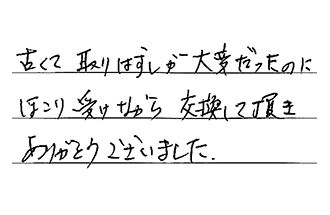 古くて取りはずしが大変だったのに
ほこり受けながら交換して頂き
ありがとうございました.